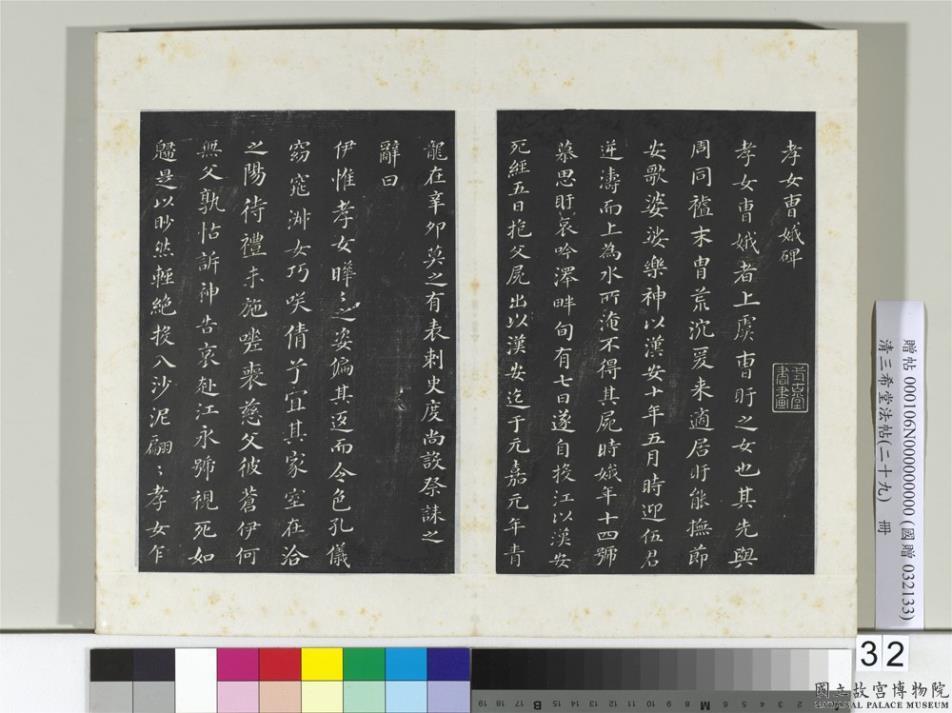 孝女曹娥碑
孝女曹娥者上虞曹盱之女也其先與
周同禮末冑荒沉爰来適居盱能撫節
安歌婆娑樂神以漢安十年五月時迎伍君
逆濤而上為水所淹不得其屍時娥年十四號
慕思盱哀吟澤畔旬有七日遂自投江以漢安
死經五日抱父屍出以漢安迄于元嘉元年青
龍在辛卯莫之有表刺史度尚設祭誄之
辭曰
伊惟孝女曄之姿偏其返而令色孔儀
窈窕淑女巧咲倩兮宜其家室在洽
之陽待禮未施嗟喪慈父彼蒼伊何
無父孰怙訴神告哀赴江永號視死如
是以眇然輕絕投入沙泥翩〻孝女乍
贈帖 000106N000000000 (國贈 032133)
清三希堂法帖(二十九) 冊
32
國立故宮博物院
NATIONAL PALACE MUSEUM
B
M